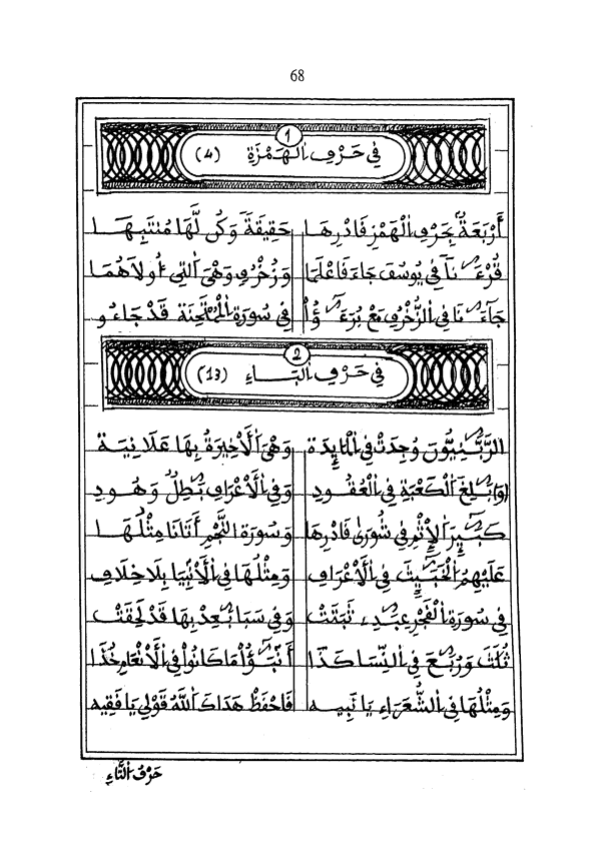 68
1
فِي حَرْفِ الْهَمْزَةِ (4)
أَرْبَعَةٌ بِحَرْفِ الْهَمْزِ فَادْرِهَا حَقِيقَةً وَكُن لَّهَا مُنْتَبِهَا
قُرْءَٰنَاً فِي يُوسُفَ جَاءَ فَاعْلَمَا وَزُخْرُفٍ وَهْيَ الَّتِي أُولَاهُمَا
جَآءَٰنَا فِي الزُّخْرُفِ مَعْ بُرَءَٰٓؤُاْ فِي سُورَةِ الْمُمْتَحِنَةِ قَدْ جَاءُو
2
فِي حَرْفِ الْبَاءِ (13)
الرَّبَّٰنِيُّونَ وُجِدَتْ فِي الْمَائِدَة وَهْيَ الْأَخِيرَةُ بِهَا عَلَانِيَة
(وَ) بَٰلِغَ الْكَعْبَةِ فِي الْعُقُودِ وَفِي الْأَعْرَافِ بَٰطِلٌ وَهُودِ
كَبَٰٓئِرَ الْإِثْمِ فِي شُورَىٰ فَادْرِهَا وَسُورَةُ النَّجْمِ أَتَانَا مِثْلُهَا
عَلَيْهِمُ الْخَبَٰٓئِثَ فِي الْأَعْرَافِ وَمِثْلُهَا فِي الْأَنْبِيَا بِلَا خِلَافِ
فِي سُورَةِ الْفَجْرِ عِبَٰدِے ثَبَتَتْ وَفِي سَبَا بَٰعِدْ بِهَا قَدْ لَحِقَتْ
ثُلَٰثَ وَرُبَٰعَ فِي النِّسَا كَذَا أَنۢبَٰٓؤُاْ مَا كَانُواْ فِي الْأَنْعَامِ خُذَا
وَمِثْلُهَا فِي الشُّعَرَاءِ يَا نَبِيه فَاحْفَظْ هَدَاكَ اللَّهُ قَوْلِي يَا فَقِيه
حَرْفُ التَّاءِ